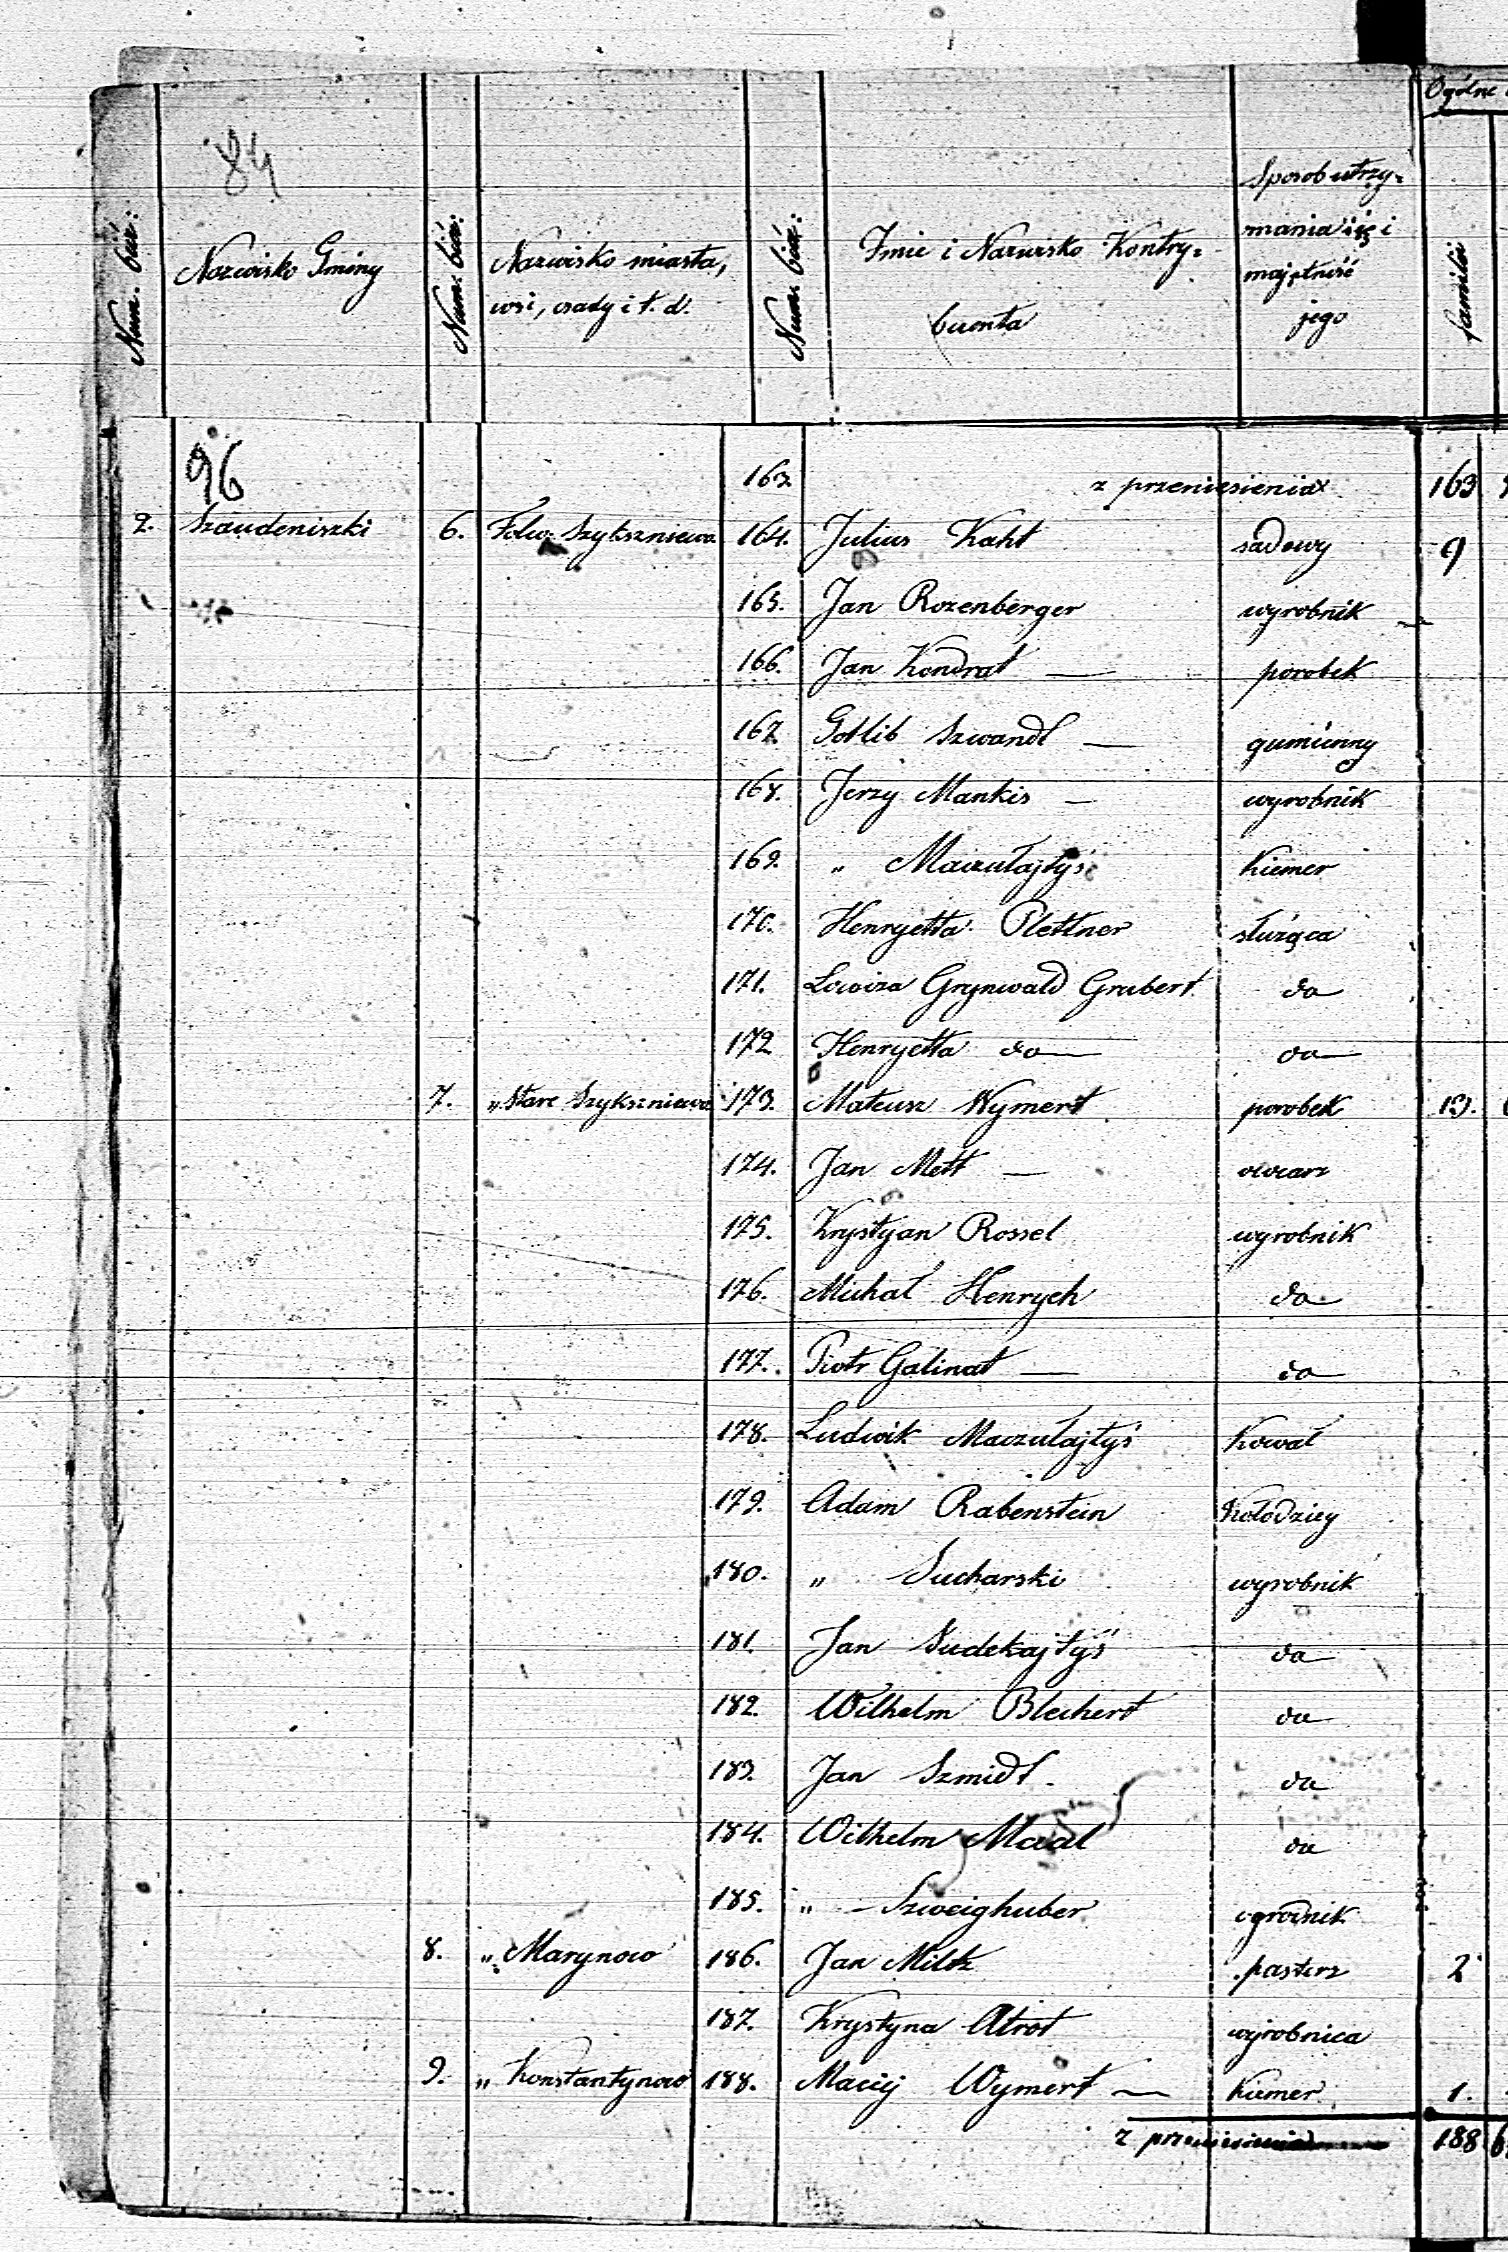 84
Ogólne
Num. bież:
Nazwisko Gminy
Num. bież:
Nazwisko miasta,
wsi, osady i t. d.
Num. bież:
Imie i Nazwisko Kontry=
buenta
Sposob utrzy=
mania się i
majętność
jego
familii
96
163. z przeniesienia 163
2. Szaudeniszki 6. Folw. Szykszniewa 164. Julius Kaht sadowy 9
165. Jan Rozenberger wyrobnik —
166. Jan Kondrat — porobek
167. Gotlib Szwandt — gumienny
168. Jerzy Mankis — wyrobnik
169. " Maczułajtyś Kiemer
170. Henryetta Plettner służąca
171. Lowiza Grynwald Grubert do
172 Henryetta do — do
7. " Stare Szykszniewa 173. Mateusz Wymert porobek 13.
174. Jan Mett — owcarz
175. Krystyan Rossel wyrobnik
176. Michał Henrych do
177. Piotr Galinat — do
178. Ludwik Maczułajtyś Kowal
179. Adam Rabenstein Kołodziey
180. " Sucharski wyrobnik
181. Jan Sudekajtyś do
182. Wilhelm Blechert do
183. Jan Szmidt do
184. Wilhelm do
185. " — Szweighuber ogrodnik
8. " Marynowo 186. Jan Miltz pasterz 2
187. Krystyna Atrot wyrobnica
9. " Konstantynowo 188. Maciej Wymert — Kiemer 1.
z przeniesienia 188